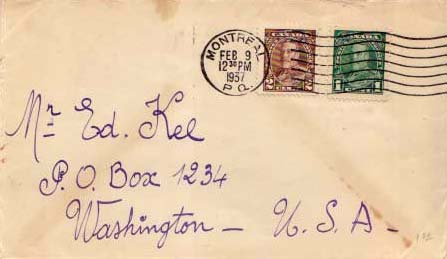 MONTREAL
FEB 9
12 30 PM
1937
P.Q.
CANADA CANADA
2 2 1 1
Mr Ed. Kel
P.O. Box 1234
Washington - U.S.A-